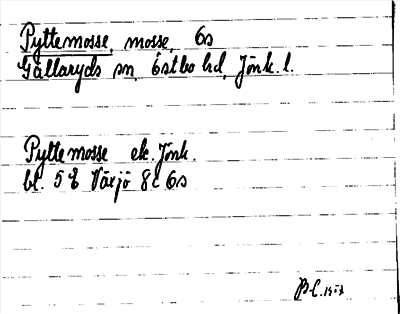 Pyttemosse, mosse, 6s
Gällaryds sn, Östbo hd, Jönk. l.
Pyttemosse ek. Jönk.
bl. 5 E Växjö 8c 6s